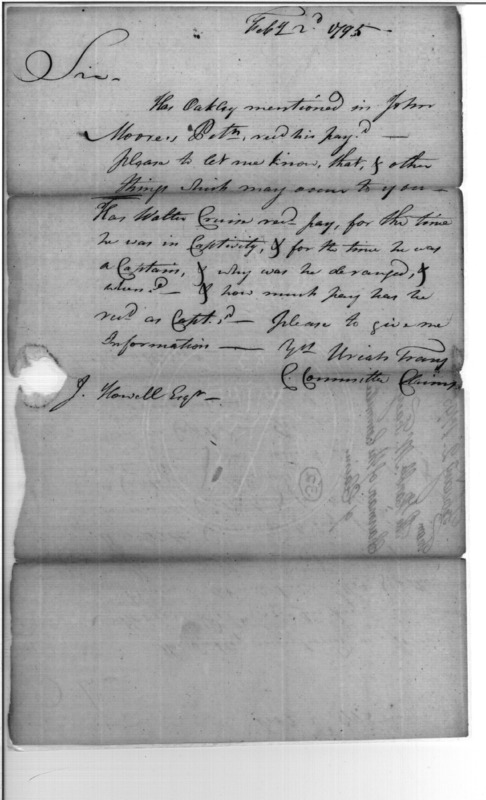 Feby 2d 1795
Sir
Has Oakley mentioned in John
Moore's Petn, recd his pay?
please to let me know, that, & other
things which may occur to you
Has Walter Cruin recd pay, for the time
he was in Captivity, & for the time he was
a Captain, & why was he deranged, &
when? & how much pay has he
recd as Capt.? please to give me
Information Yrs Uriah Tracy
C. Committee Claims
J. Howell Esqr